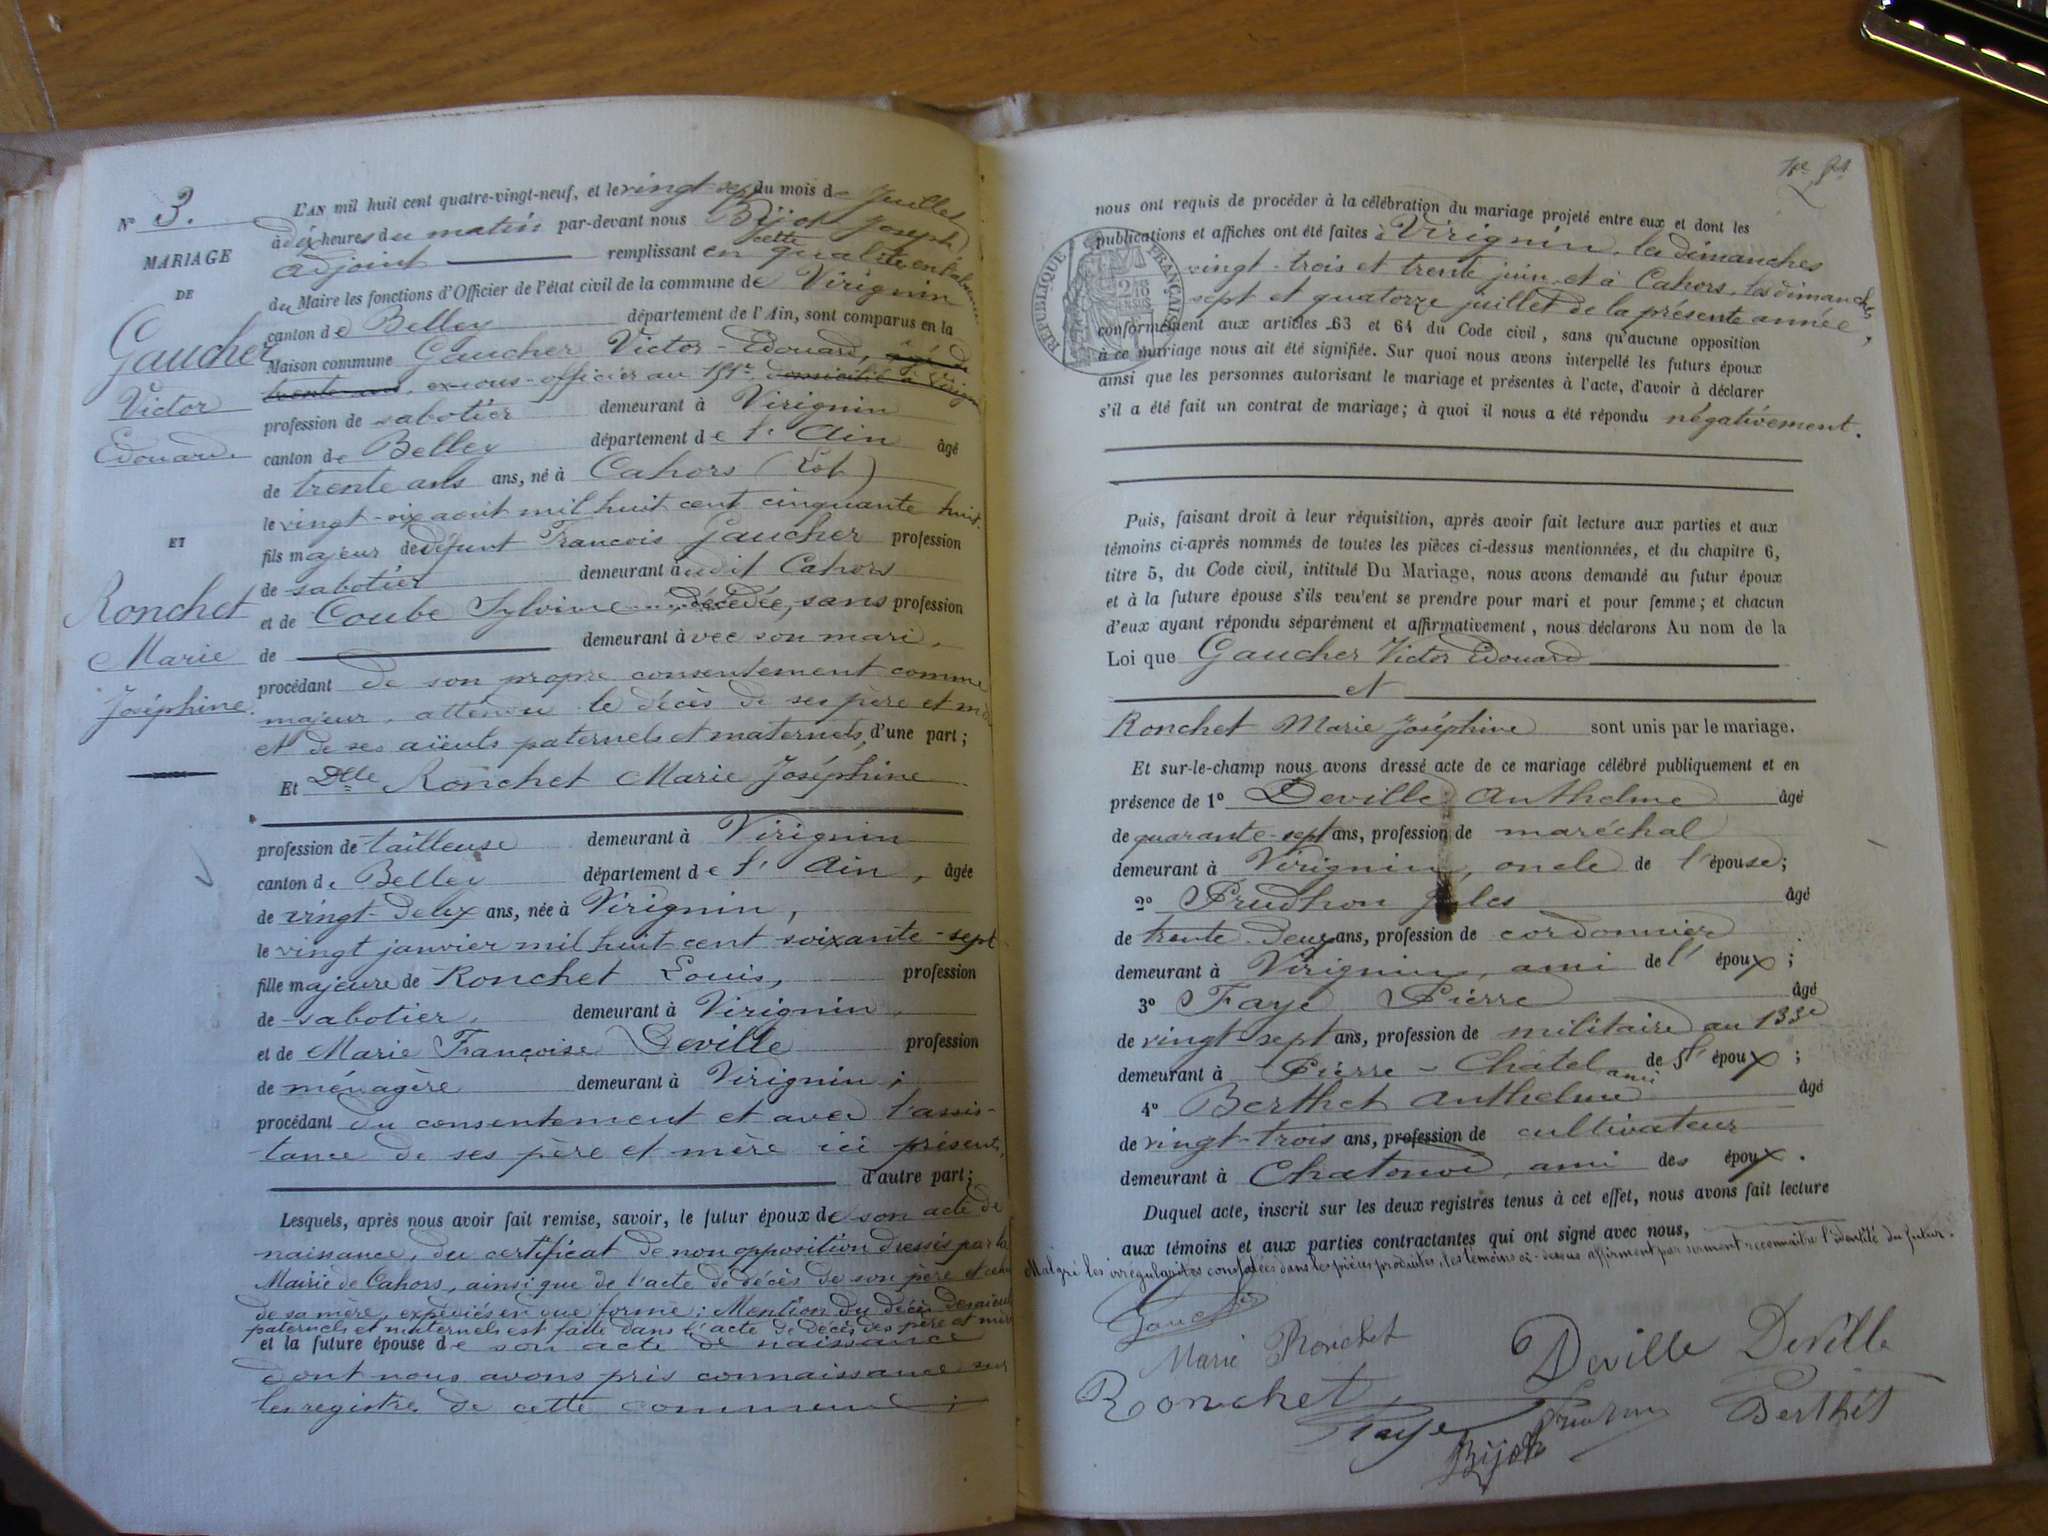 N° 3.
MARIAGE
DE
Gaucher
Victor
Edouard.
ET
Ronchet
Marie
Joséphine.
L'AN mil huit cent quatre-vingt-neuf, et le vingt-sept du mois de Juillet
à dix heures du matin par-devant nous Bijot Joseph
adjoint remplissant en cette qualité, en l'absence
du Maire les fonctions d'Officier de l'état civil de la commune de Virignin
canton de Belley département de l'Ain, sont comparus en la
Maison commune Gaucher Victor-Edouard, âgé de
trente ans, ex-sous-officier au domicilié à Virignin
profession de sabotier demeurant à Virignin
canton de Belley département de l'Ain âgé
de trente ans ans, né à Cahors (Lot)
le vingt-six août mil huit cent cinquante huit.
fils majeur de défunt François Gaucher profession
de sabotier demeurant audit Cahors
et de Coube Sylvine décédée, sans profession
de demeurant avec son mari,
procédant de son propre consentement comme
majeur, attendu le décès de ses père et mère
et de ses aïeuls paternels et maternels, d'une part;
Et Dlle Ronchet Marie Joséphine
profession de tailleuse demeurant à Virignin
canton de Belley département de l'Ain, âgée
de vingt-deux ans, née à Virignin,
le vingt janvier mil huit cent soixante-sept
fille majeure de Ronchet Louis, profession
de sabotier, demeurant à Virignin,
et de Marie Françoise Deville profession
de ménagère demeurant à Virignin;
procédant du consentement et avec l'assis-
tance de ses père et mère ici présents,
d'autre part;
Lesquels, après nous avoir fait remise, savoir, le futur époux de son acte de
naissance, du certificat de non opposition dressés par la
Mairie de Cahors, ainsi que de l'acte de décès de son père et celui
de sa mère, expédiés en due forme; Mention du décès des aïeuls
paternels et maternels est faite dans l'acte de décès des père et mère
et la future épouse de son acte de naissance
dont nous avons pris connaissance sur
les registres de cette commune;
nous ont requis de procéder à la célébration du mariage projeté entre eux et dont les
publications et affiches ont été faites à Virignin, les dimanches
vingt-trois et trente juin, et à Cahors, les dimanches
sept et quatorze juillet de la présente année,
RÉPUBLIQUE FRANÇAISE
conformément aux articles 63 et 64 du Code civil, sans qu'aucune opposition
à ce mariage nous ait été signifiée. Sur quoi nous avons interpellé les futurs époux
ainsi que les personnes autorisant le mariage et présentes à l'acte, d'avoir à déclarer
s'il a été fait un contrat de mariage; à quoi il nous a été répondu négativement.
Puis, faisant droit à leur réquisition, après avoir fait lecture aux parties et aux
témoins ci-après nommés de toutes les pièces ci-dessus mentionnées, et du chapitre 6,
titre 5, du Code civil, intitulé Du Mariage, nous avons demandé au futur époux
et à la future épouse s'ils veulent se prendre pour mari et pour femme; et chacun
d'eux ayant répondu séparément et affirmativement, nous déclarons Au nom de la
Loi que Gaucher Victor Edouard
et
Ronchet Marie Joséphine sont unis par le mariage.
Et sur-le-champ nous avons dressé acte de ce mariage célébré publiquement et en
présence de 1° Deville Anthelme âgé
de quarante-sept ans, profession de maréchal
demeurant à Virignin, oncle de l'épouse;
2° Prudhon Jules âgé
de trente-deux ans, profession de cordonnier
demeurant à Virignin, ami de l'époux;
3° Faye Pierre âgé
de vingt-sept ans, profession de militaire au 133e
demeurant à Pierre-Chatel ami de l'époux;
4° Berthet Anthelme âgé
de vingt-trois ans, profession de cultivateur
demeurant à Chatonod, ami des époux.
Duquel acte, inscrit sur les deux registres tenus à cet effet, nous avons fait lecture
aux témoins et aux parties contractantes qui ont signé avec nous,
Malgré les irrégularités constatées dans les pièces produites, les témoins ci-dessus affirment par serment reconnaître l'identité du futur.
Gaucher
Marie Ronchet
Deville Deville
Ronchet
Faye
Berthet
Bijot